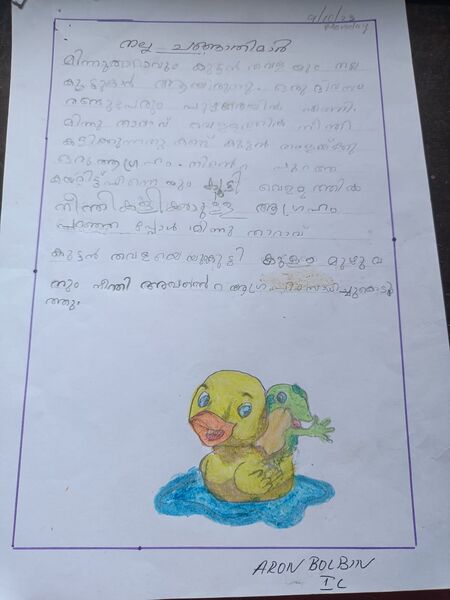 9/10/23
Monday
നല്ല ചങ്ങാതിമാർ
മിന്നുതാറാവും കുട്ടൻ തവളയും നല്ല
കൂട്ടുകാർ ആയിരുന്നു. ഒരു ദിവസം
രണ്ടുപേരും പുഴക്കരയിൽ എത്തി.
മിന്നു താറാവ് വെള്ളത്തിൽ നീന്തി
കളിക്കുന്നതു കണ്ട് കുട്ടൻ തവളയ്ക്കു
ഒരു ആഗ്രഹം. നിന്റെ പുറത്ത
കയറ്റിട്ട് എന്നെയും കൂട്ടി വെള്ളത്തിൽ
നീന്തികളിക്കാനുള്ള ആഗ്രഹം
പറഞ്ഞപ്പോൾ മിന്നു താറാവ്
കുട്ടൻ തവളയെയുംകൂട്ടി കുളം മുഴുവ
നും നീന്തി അവന്റെ ആഗ്രഹം സാധിച്ചുകൊടു
ത്തു.
ARON BOLBIN
I C